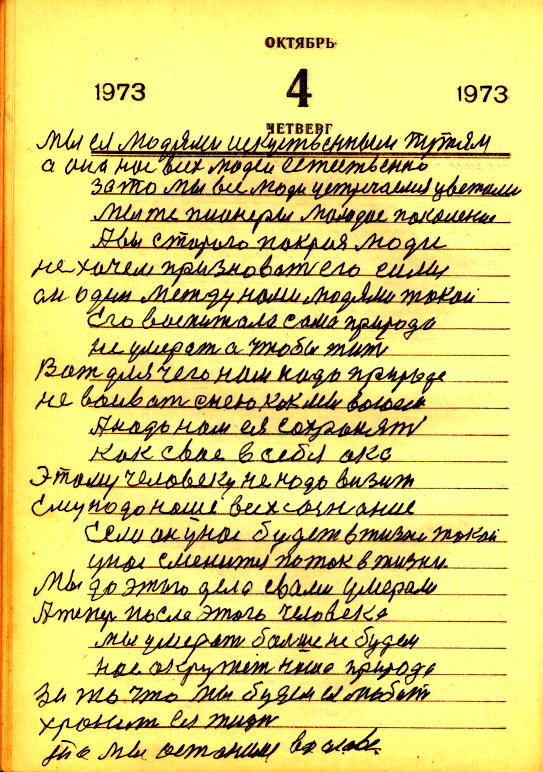 ОКТЯБРЬ
1973 4 1973
ЧЕТВЕРГ
Мы ея людями искуственным путям
а она нас всех людей естественно
Зато мы все люди устречаемся цветами
Мы те пионеры молодое поколение
А вы старого покроя люди
не хочем признават его силы
он один между нами людями такой
Его воспитала сама природа
не умерат а чтобы жит
Вот для чего нам надо природе
не воиват с нею как мы воюем
А надо нам ея сохронят
как свое в себя око
Этому человеку не надо визит
Ему надо наше всех сознание
Если он у нас будет в жизни такой
у нас сменится поток в жизни
Мы до этого дела свами умерали
А тепер после этого человека
мы умерат болше не будем
нас окружет наша природа
За то что мы будем ея любит
хронит ея
то мы останимся в славе